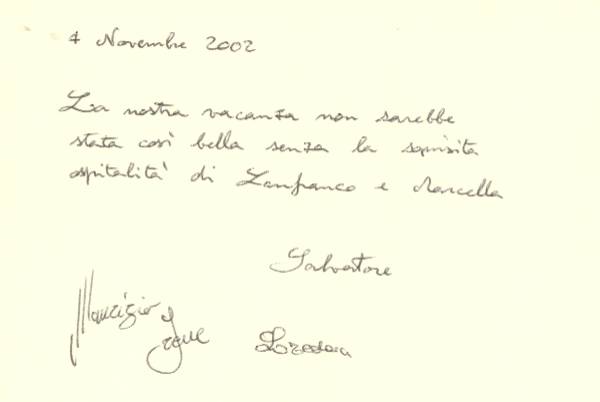 4 Novembre 2002
La nostra vacanza non sarebbe
stata così bella senza la squisita
ospitalità di Lanfranco e Marcella
Salvatore
Maurizio e
Irene
Loredana